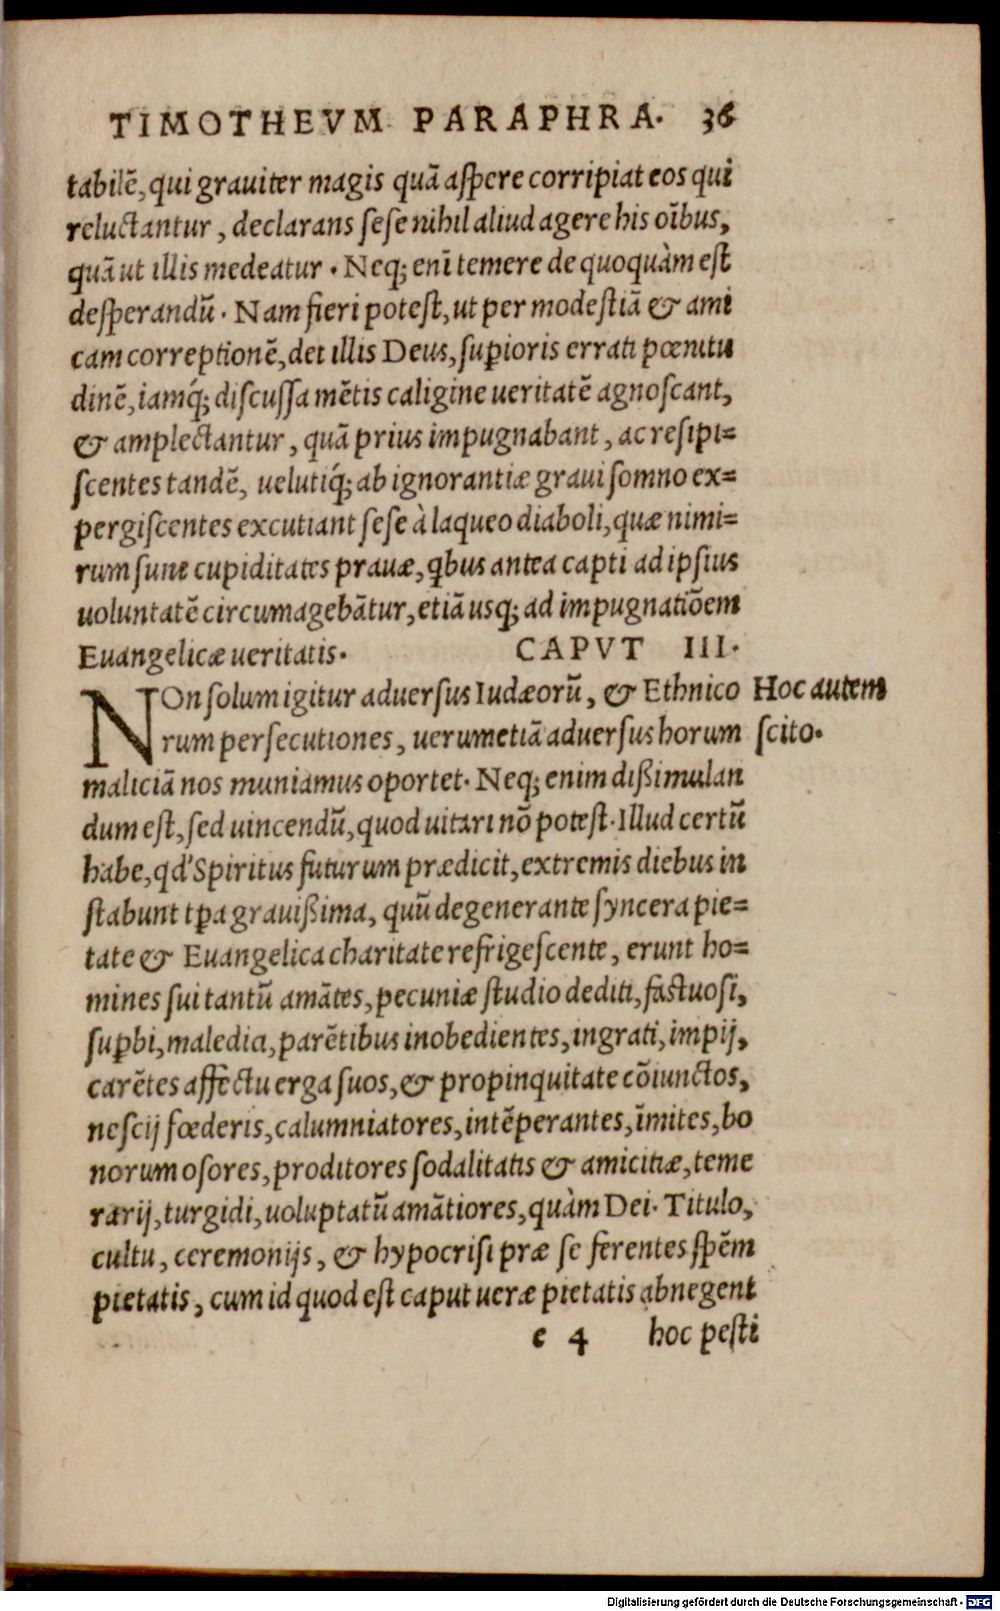 TIMOTHEVM PARAPHRA. 36
tabilē, qui grauiter magis quā aſpere corripiat eos qui
reluctantur, declarans ſeſe nihil aliud agere his oībus,
quā ut illis medeatur. Neq; enī temere de quoquàm eſt
deſperandū. Nam fieri poteſt, ut per modeſtiā & ami
cam correptionē, det illis Deus, ſuꝑioris errati pœnitu
dinē, iamq́; diſcuſſa mētis caligine ueritatē agnoſcant,
& amplectantur, quā prius impugnabant, ac reſipi=
ſcentes tandē, uelutiq́; ab ignorantiæ graui ſomno ex=
pergiſcentes excutiant ſeſe à laqueo diaboli, quæ nimi=
rum ſunt cupiditates prauæ, ꝗbus antea capti ad ipſius
uoluntatē circumagebātur, etiā usq; ad impugnatiōem
Euangelicæ ueritatis. CAPVT III.
NOn ſolum igitur aduerſus Iudæorū, & Ethnico
Hoc autem
rum perſecutiones, uerumetiā aduerſus horum
ſcito.
maliciā nos muniamus oportet. Neq; enim dißimulan
dum eſt, ſed uincendū, quod uitari nō poteſt. Illud certū
habe, qd' Spiritus futurum prædicit, extremis diebus in
ſtabunt tꝑa grauißima, quū degenerante ſyncera pie=
tate & Euangelica charitate refrigeſcente, erunt ho=
mines ſui tantū amātes, pecuniæ ſtudio dediti, faſtuoſi,
ſuꝑbi, maledici, parētibus inobedientes, ingrati, impij,
carētes affectu erga ſuos, & propinquitate cōiunctos,
neſcij fœderis, calumniatores, intēperantes, īmites, bo
norum oſores, proditores ſodalitatis & amicitiæ, teme
rarij, turgidi, uoluptatū amātiores, quàm Dei. Titulo,
cultu, ceremonijs, & hypocriſi præ ſe ferentes ſpēm
pietatis, cum id quod eſt caput ueræ pietatis abnegent
e 4 hoc peſti
Digitalisierung gefördert durch die Deutsche Forschungsgemeinschaft - DFG